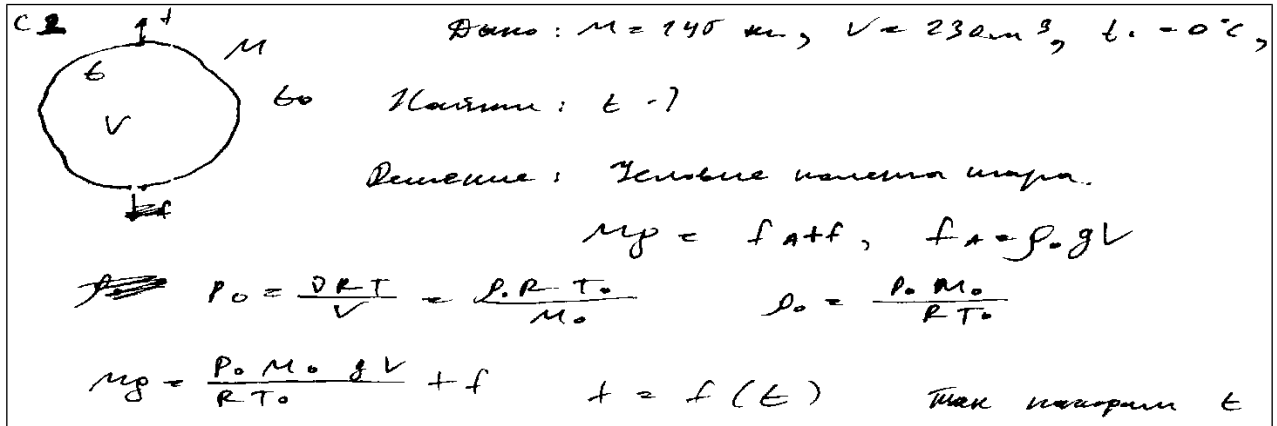 С2 f M t V t₀ f
Дано: M = 145 кг, V = 230 м³, t₀ = 0°C,
Найти: t - ?
Решение: Условие полета шара.
Mg = f_A + f, f_A = ρ₀gV
P₀ = νRT/V = ρ₀RT₀/M₀ ρ₀ = P₀M₀/RT₀
Mg = P₀M₀gV/RT₀ + f f = f(t) Так находим t